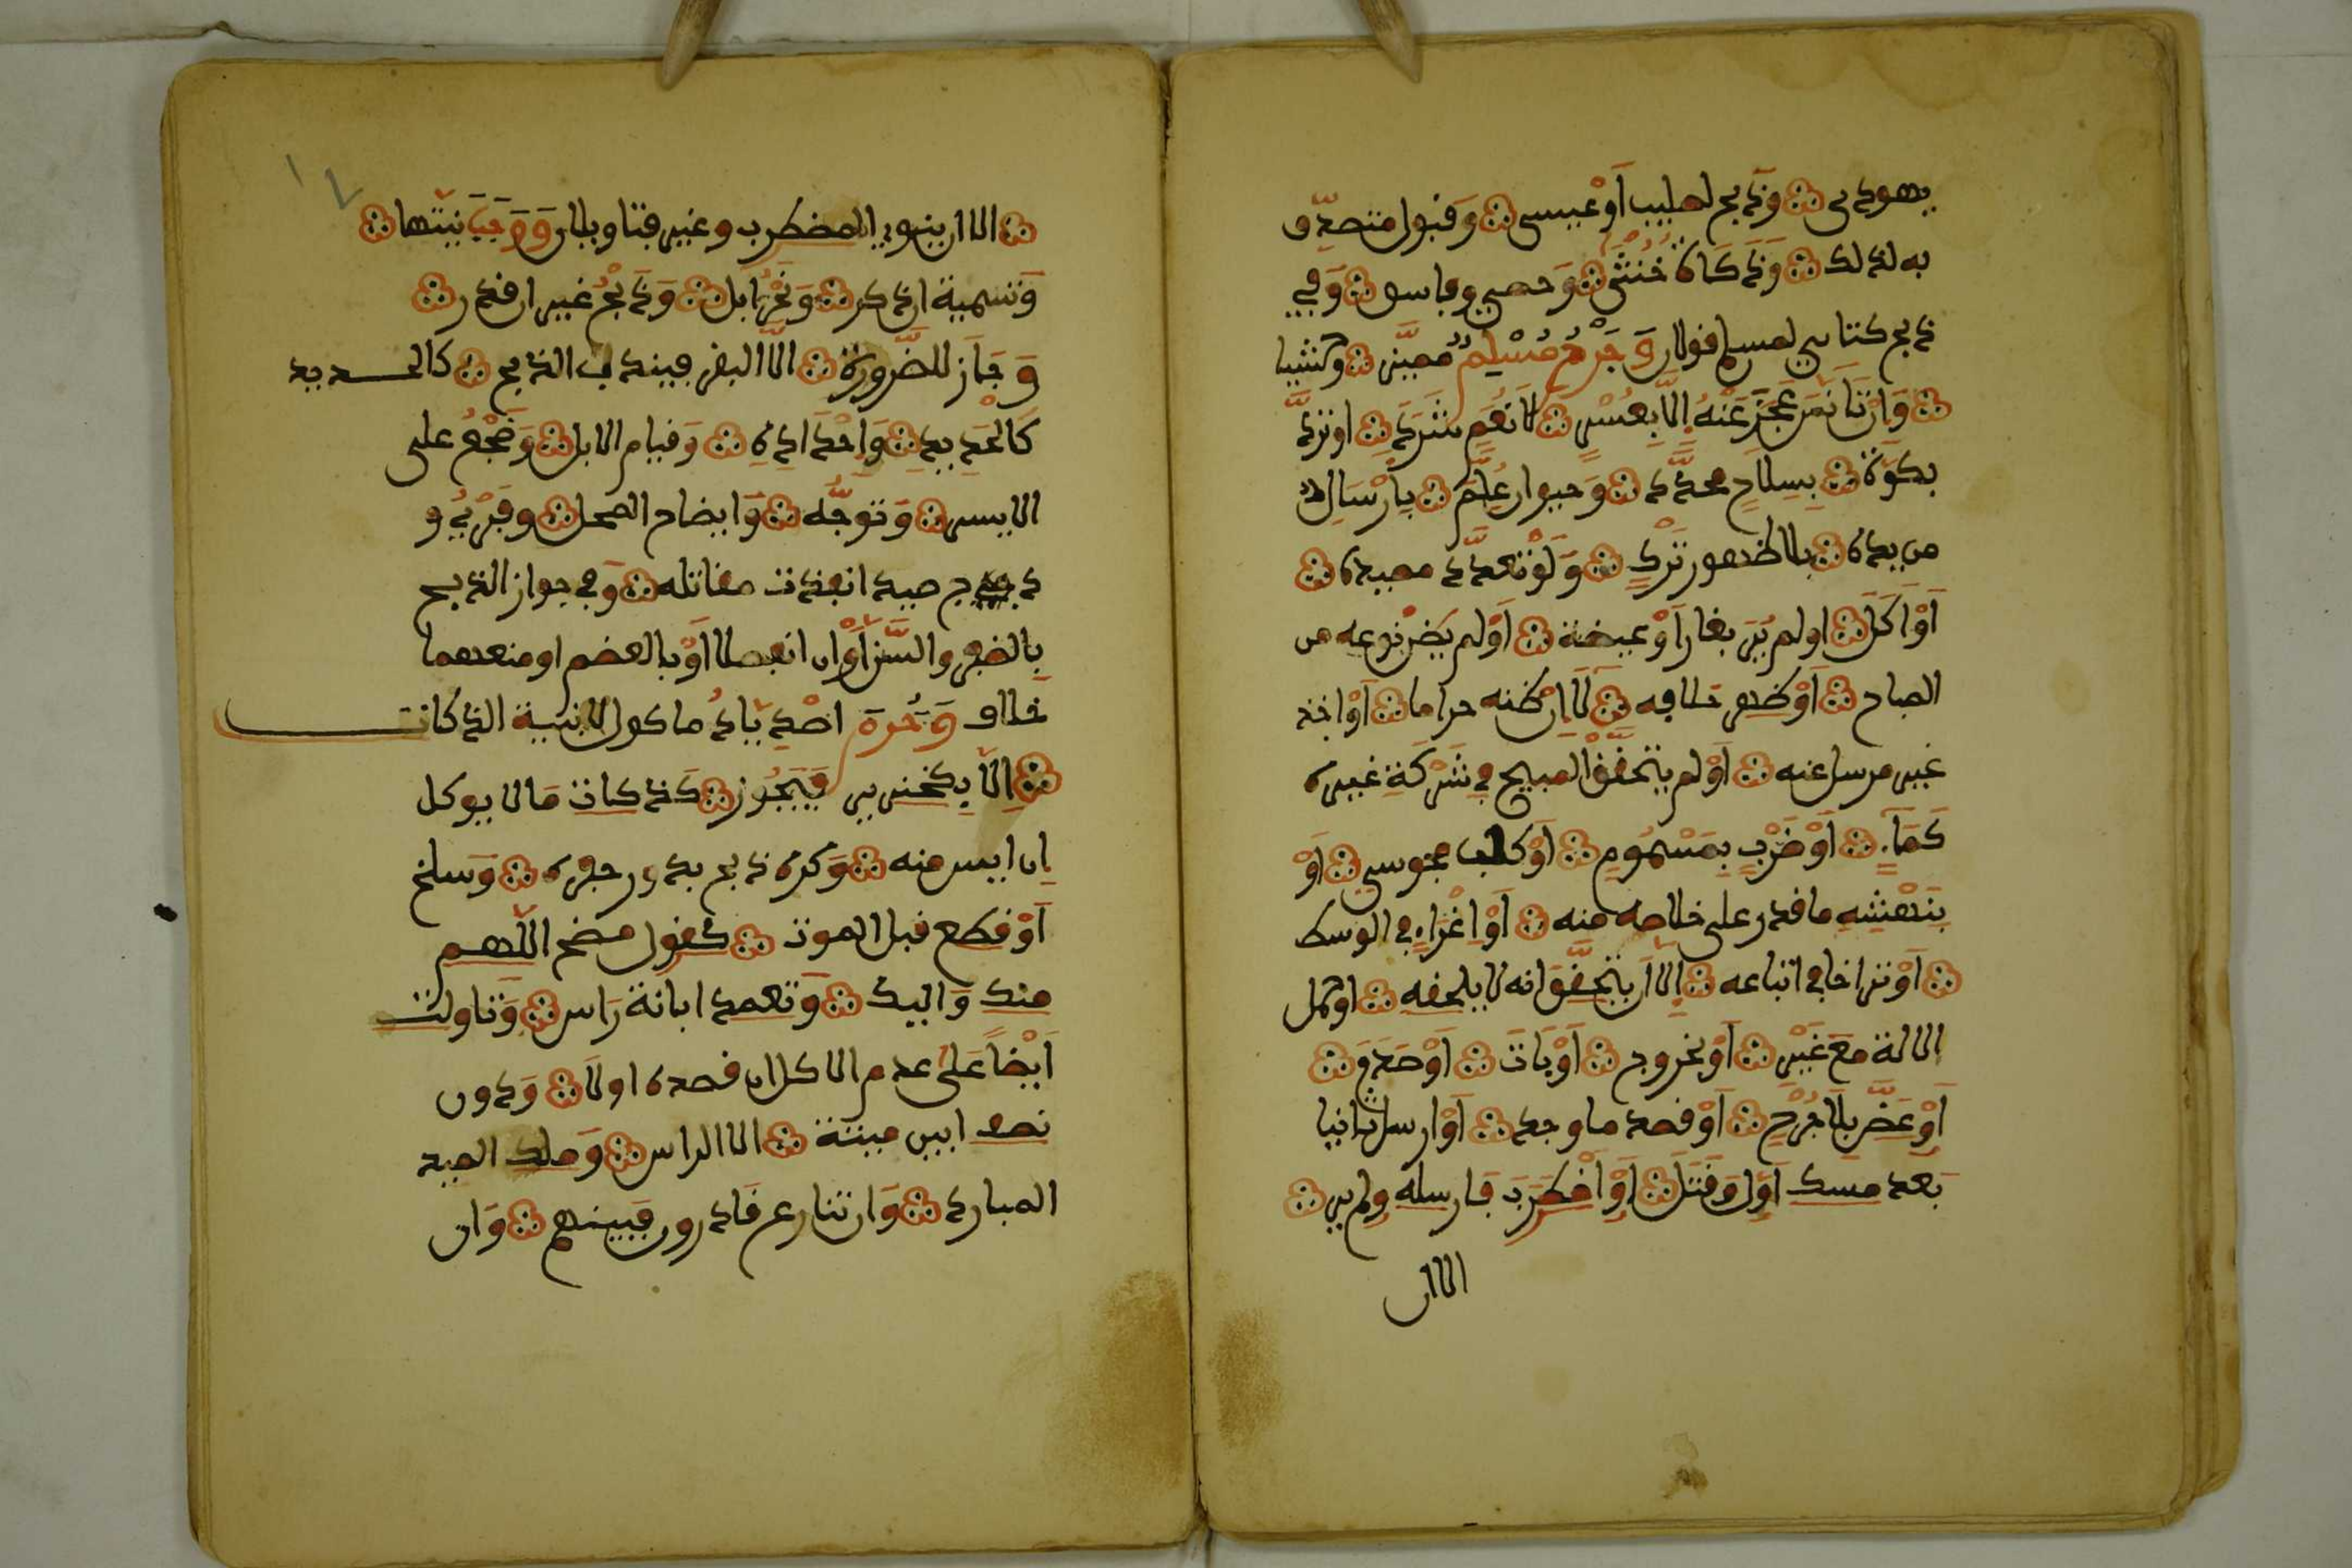 يهودي وذبح لصليب أو عيسى وقبول متصدق
به لذلك وذكاة خنثى وخصي وفاسق وفي
ذبح كتابي لمسلم قولان وجرح مسلم مميز وحشيا
وإن تأنس عجز عنه إلا بعسر لا نعم شرد أو تردى
بكوة بسلاح محدد وحيوان علم بإرسال
من يده بلا ظهور ترك ولو تعدد مصيده
أو أكل أو لم ير بغار أو غيضة أو لم يظن نوعه من
المباح أو ظهر خلافه لا إن ظنه حراما أو أخذ
غير مرسل عنه أو لم يتحقق المبيح في شركة غيره
كماء أو ضرب بمسموم أو كلب مجوسي أو
بنهشه ما قدر على خلاصه منه أو إغراء في الوسط
أو تراخا في اتباعه إلا أن يتحقق أنه لا يلحقه أو حمل
الآلة مع غير أو بخروج أو بات أو صدم
أو عض بلا جرح أو قصد ما وجد أو أرسل ثانيا
بعد مسك أول وقتل أو اضطرب فأرسله ولم ير
الا ان
الا أن ينوي المضطرب وغيره فتاويلان ووجب نيتها
وتسمية إن ذكر ونحر إبل وذبح غير إن قدر
وجاز للضرورة إلا البقر فيندب الذبح كالحديد
كالحديد وإحداده وقيام الإبل وضجع على
الأيسر وتوجه وإيضاح المحل وفري و
دجي صيد انفذت مقاتله وفي جواز الذبح
بالظفر والسن أو إن انفصلا أو بالعظم أو منعهما
خلاف وحرم اصطياد مأكول لا بنية الذكاة
إلا بكخنزير فيجوز كذكاة ما لا يوكل
إن أيس منه وكره ذبح بدور حفرة وسلخ
أو قطع قبل الموت كقول مضح اللهم
منك وإليك وتعمد إبانة رأس وتأولت
أيضا على عدم الأكل إن قصده أولا ودون
نصف أبين ميتة إلا الرأس وملك الصيد
المبادر وإن تنازع قادرون فبينهم وإن